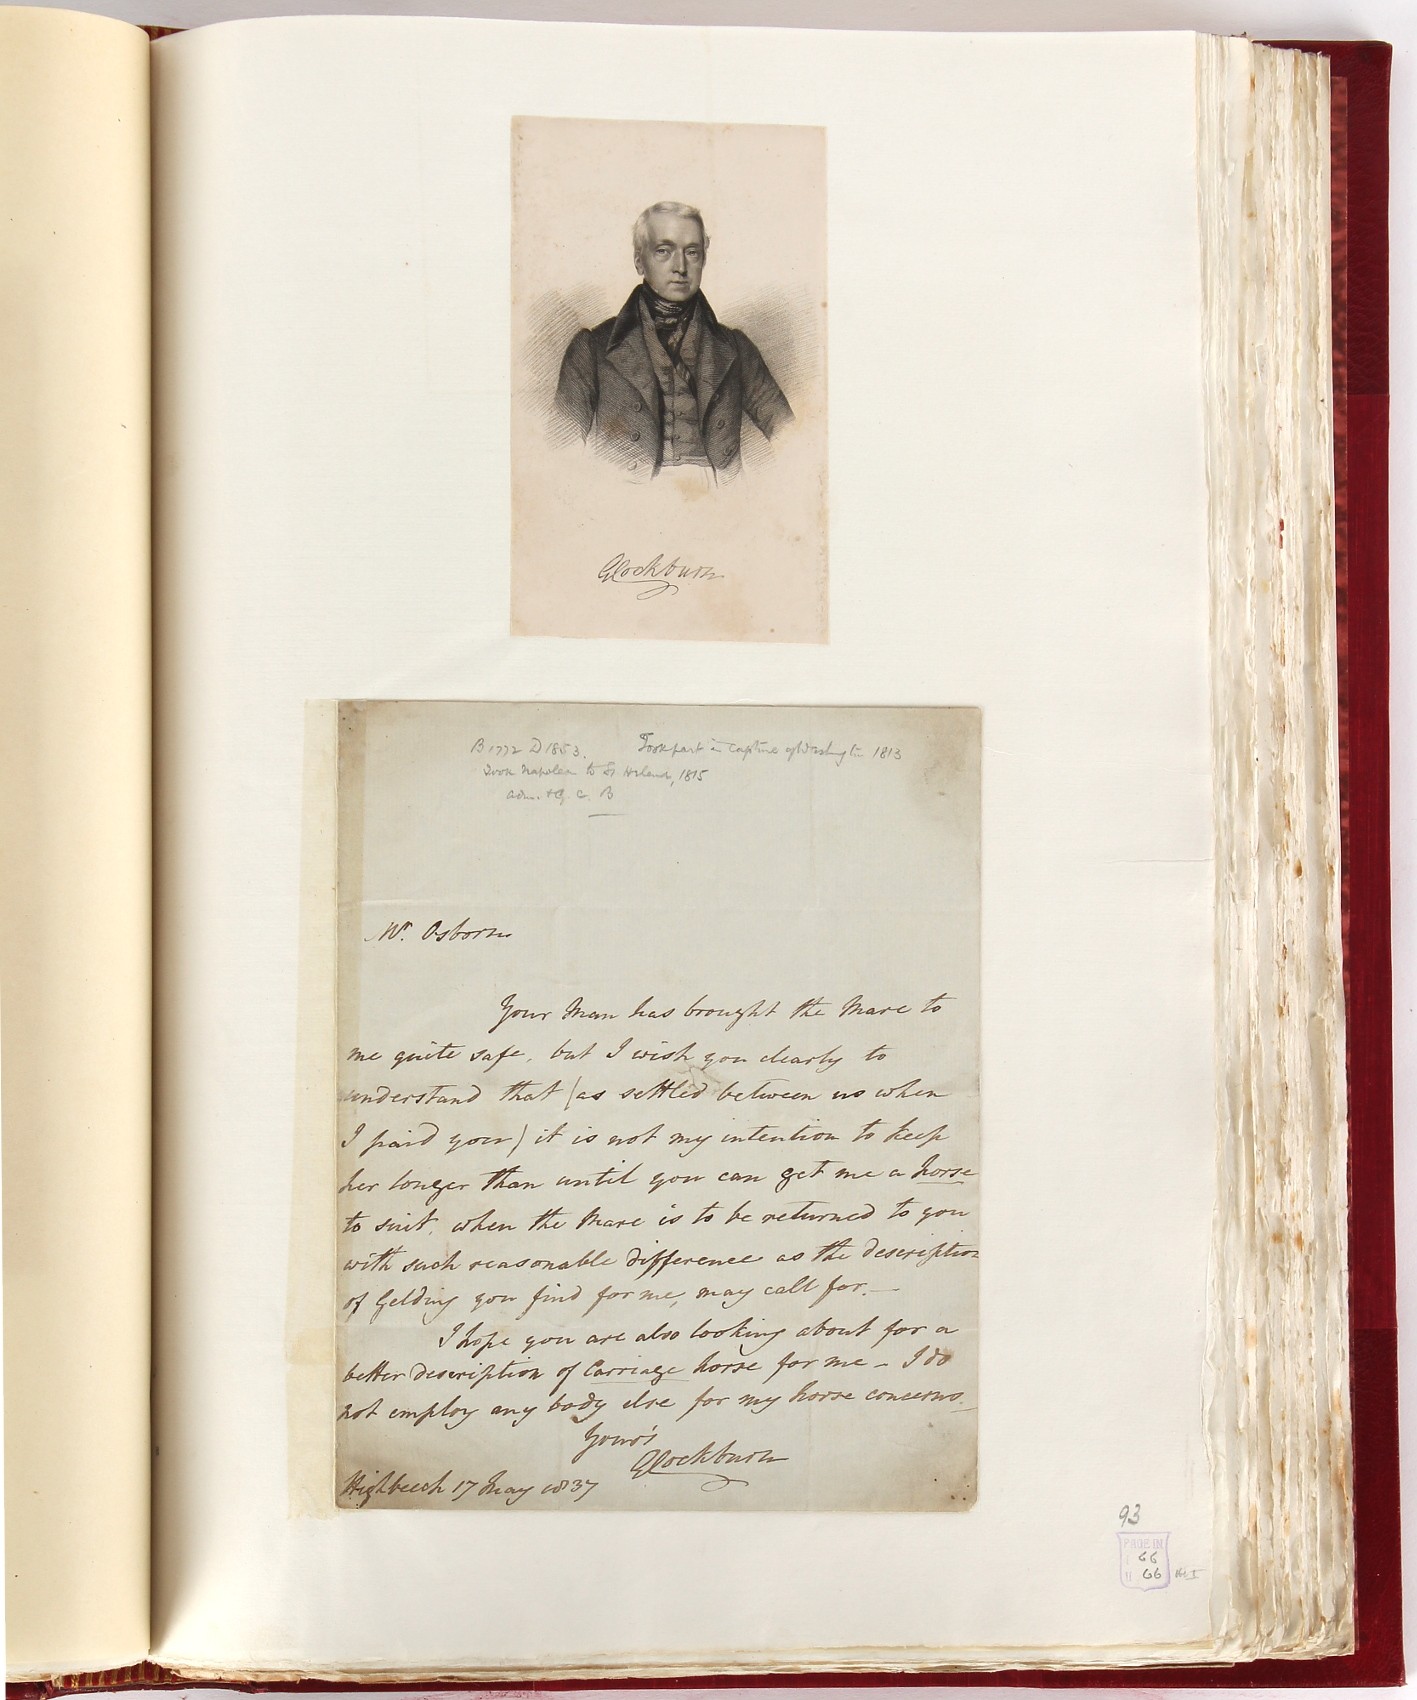 GCockburn
B 1772 D 1853. Took part in Capture of Washington 1813
Took Napoleon to St Helena, 1815
Adm. & G. C. B
Mr. Osborne
Your Man has brought the Mare to
me quite safe, but I wish you clearly to
understand that (as settled between us when
I paid you) it is not my intention to keep
her longer than until you can get me a horse
to suit, when the Mare is to be returned to you
with such reasonable difference as the description
of Gelding you find for me, may call for.—
I hope you are also looking about for a
better description of Carriage horse for me – I do
not employ any body else for my horse concerns.
Your's
GCockburn
Highbeech 17 May 1837
93
PAGE IN
I 66
II 66 Vol I